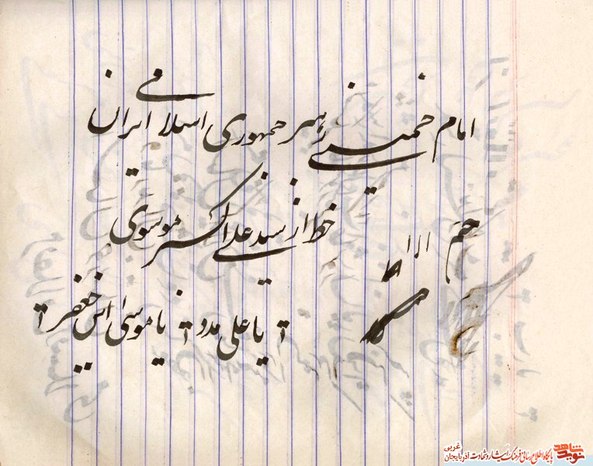 امام خمینی رهبر جمهوری اسلامی ایران
خط از سید علی اکبر موسوی
یا علی مدد یا موسی ابن جعفر
نوید شاهد
پایگاه اطلاع رسانی فرهنگ ایثار و شهادت آذربایجان غربی